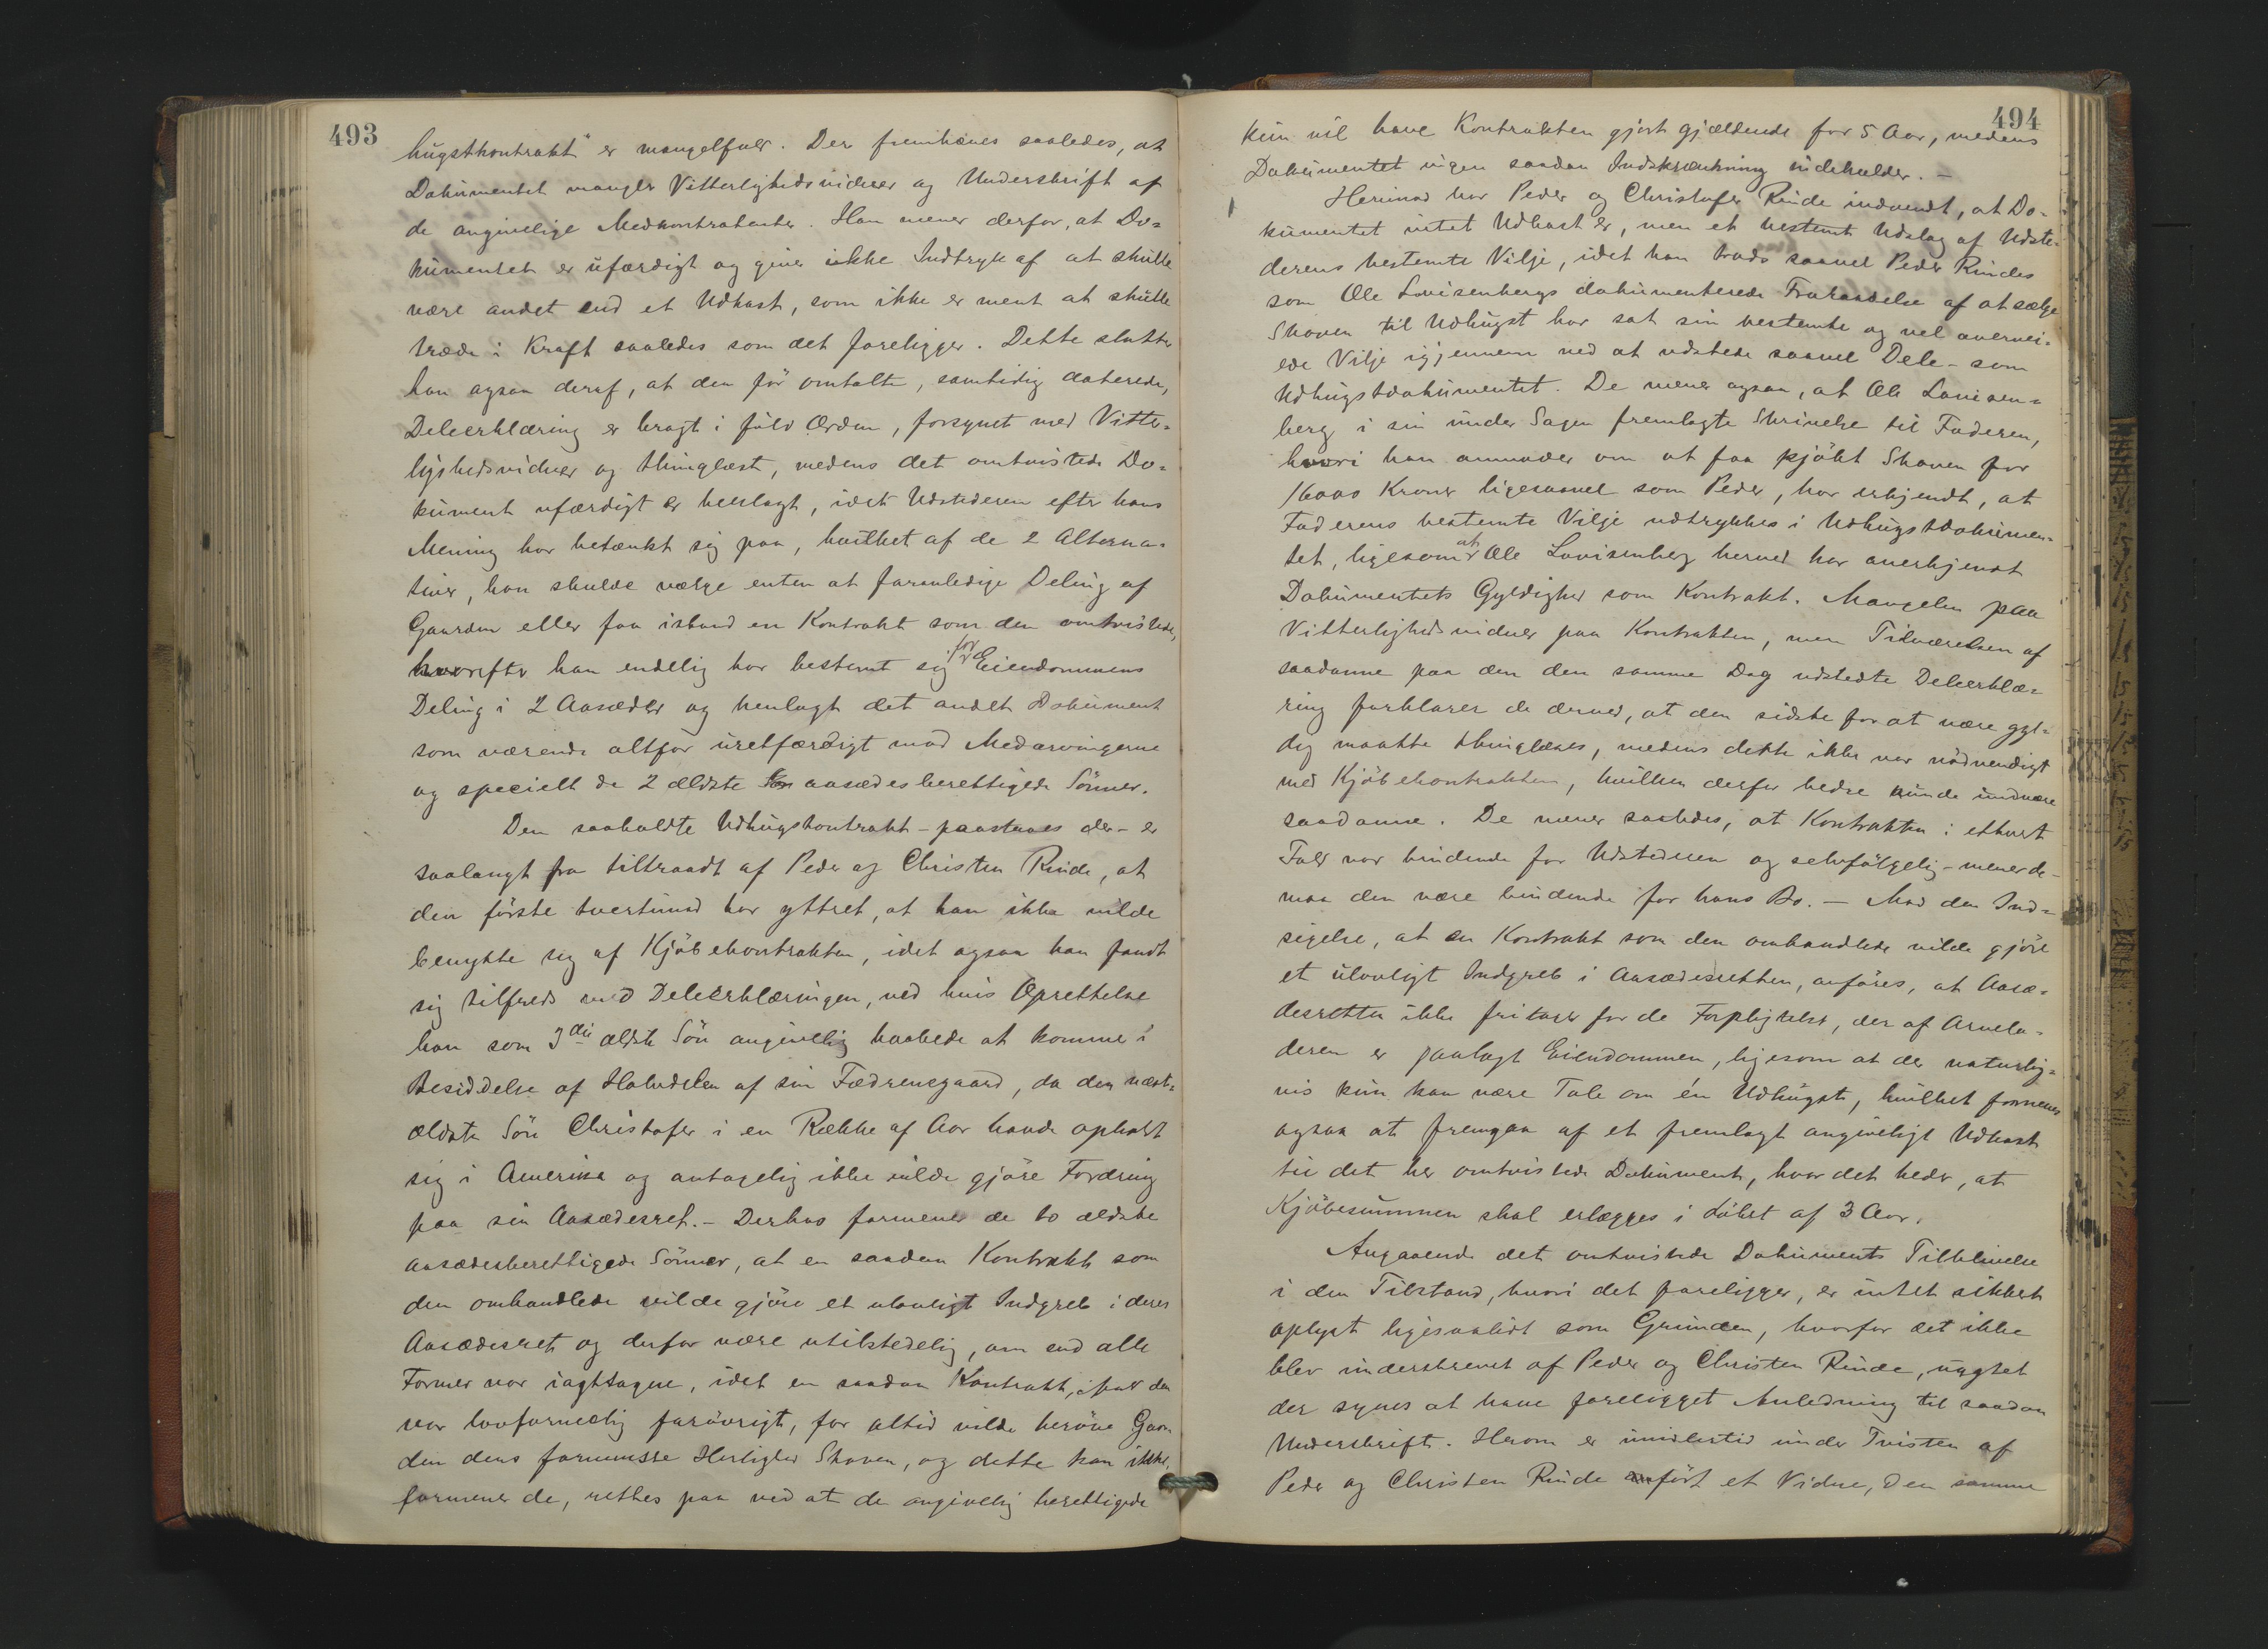 493
hugstkontrakt" er mangelfuld. Der fremhæves saaledes, at
Dokumentet mangler Vitterlighedsvidner og Underskrift af
de angivelige Medkontrahenter. Han mener derfor, at Do=
kumentet er ufærdigt og giver ikke Indtryk af at skulle
være andet end et Udkast, som ikke er ment at skulle
træde i Kraft saaledes som det foreligger. Dette slutter
han ogsaa deraf, at den før omtalte, samtidig daterede,
Deleerklæring er bragt i fuld Orden, forsynet med Vitter=
lighedsvidner og thinglæst, medens det omtvistede Do=
kument ufærdigt er henlagt, idet Udstederen efter hans
Mening har betænkt sig paa, hvilket af de 2 Alterna=
tiver, han skulde vælge enten at foranledige Deling af
Gaarden eller faa istand en Kontrakt som den omtvistede,
hvorefter han endelig har bestemt sig for Eiendommens
Deling i 2 Aasæder og henlagt det andet Dokument
som værende altfor uretfærdigt mod Medarvingerne
og specielt de 2 ældste aasædesberettigede Sønner.
Den saakaldte Udhugstkontrakt - paastaaes der - er
saalangt fra tiltraadt af Peder og Christen Rinde, at
den første tvertimod har yttret, at han ikke vilde
benytte sig af Kjøbekontrakten, idet ogsaa han fandt
sig tilfreds med Deleerklæringen, ved hvis Oprettelse
han som 3die ældste Søn angivelig haabede at komme i
Besiddelse af Halvdelen af sin Fædrenegaard, da den næst=
ældste Søn Christofer i en Række af Aar havde opholdt
sig i Amerika og antagelig ikke vilde gjøre Fordring
paa sin Aasædesret. - Derhos formener de to ældste
aasædesberettigede Sønner, at en saadan Kontrakt som
den omhandlede vilde gjøre et ulovligt Indgreb i deres
Aasædesret og derfor være utilstedelig, om end alle
Former var iagttagne, idet en saadan Kontrakt, ifald den
var lovformelig forøvrigt, for altid vilde berøve Gaar
den dens fornemste Herlighed Skoven, og dette kan ikke,
formener de, rettes paa ved at de angivelig berettigede
494
kun vil have Kontrakten gjort gjældende for 5 Aar, medens
Dokumentet ingen saadan Indskrænkning indeholder. -
Herimod har Peder og Christofer Rinde indvendt, at Do=
kumentet intet Udkast er, men et bestemt Udslag af Udste=
derens bestemte Vilje, idet han trods saavel Peder Rindes
som Ole Lovisenbergs dokumenterede Fraraadelse af at sælge
Skoven til Udhugst har sat sin bestemte og vel overvei=
ede Vilje igjennem ved at udstede saavel Dele- som
Udhugstdokumentet. De mener ogsaa, at Ole Lovisen=
berg i sin under Sagen fremlagte Skrivelse til Faderen,
hvori han anmoder om at faa kjøbt Skoven for
16000 Kroner ligesaavel som Peder, har erkjendt, at
Faderens bestemte Vilje udtrykkes i Udhugstdokumen=
tet, ligesom at Ole Lovisenberg herved har anerkjendt
Dokumentets Gyldighed som Kontrakt. Mangelen paa
Vitterlighedsvidner paa Kontrakten, men Tilværelsen af
saadanne paa den den samme Dag udstedte Deleerklæ=
ring forklarer de derved, at den sidste for at være gyl=
dig maatte thinglæses, medens dette ikke var nødvendigt
med Kjøbekontrakten, hvilken derfor bedre kunde undvære
saadanne. De mener saaledes, at Kontrakten i ethvert
Fald var bindende for Udstederen og selvfølgelig - mener de -
maa den være bindende for hans Bo. - Mod den Ind=
sigelse, at en Kontrakt som den omhandlede vilde gjøre
et ulovligt Indgreb i Aasædesretten, anføres, at Aasæ=
desretten ikke fritager for de Forpligtelser, der af Arvela=
deren er paalagt Eiendommen, ligesom at der naturlig=
vis kun kan være Tale om én Udhugst, hvilket formenes
ogsaa at fremgaa af et fremlagt angiveligt Udkast
til det her omtvistede Dokument, hvor det heder, at
Kjøbesummen skal erlægges i Løbet af 3 Aar.
Angaaende det omtvistede Dokuments Tilblivelse
i den Tilstand, hvori det foreligger, er intet sikkert
oplyst ligesaalidt som Grunden, hvorfor det ikke
blev underskrevet af Peder og Christen Rinde, uagtet
der synes at have foreligget Anledning til saadan
Underskrift. Herom er imidlertid under Tvisten af
Peder og Christen Rinde ført et Vidne, den samme